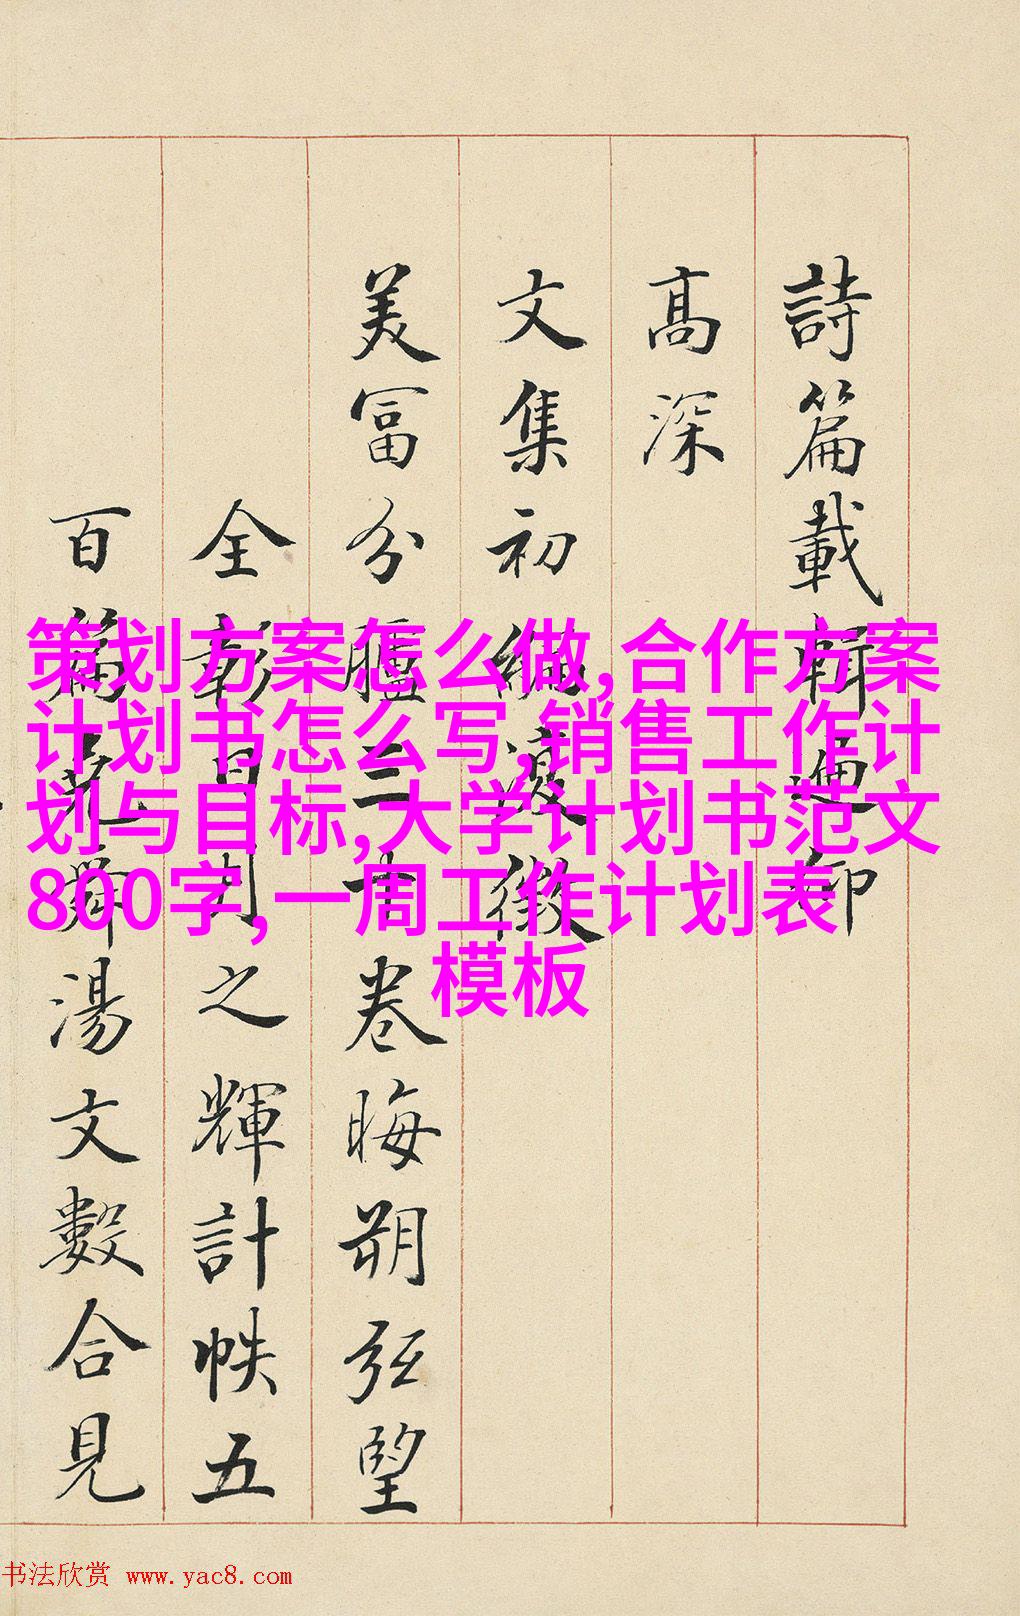 詩篇載輯廼仰
高深
文集初編復徵
美富分臚三十卷晦朔弦望
全彰日月之輝計帙五
百篇堯舜湯文數合見
策划方案怎么做,合作方案
计划书怎么写,销售工作计
划与目标,大学计划书范文
800字,一周工作计划表
模板
书法欣赏 www.yac8.com